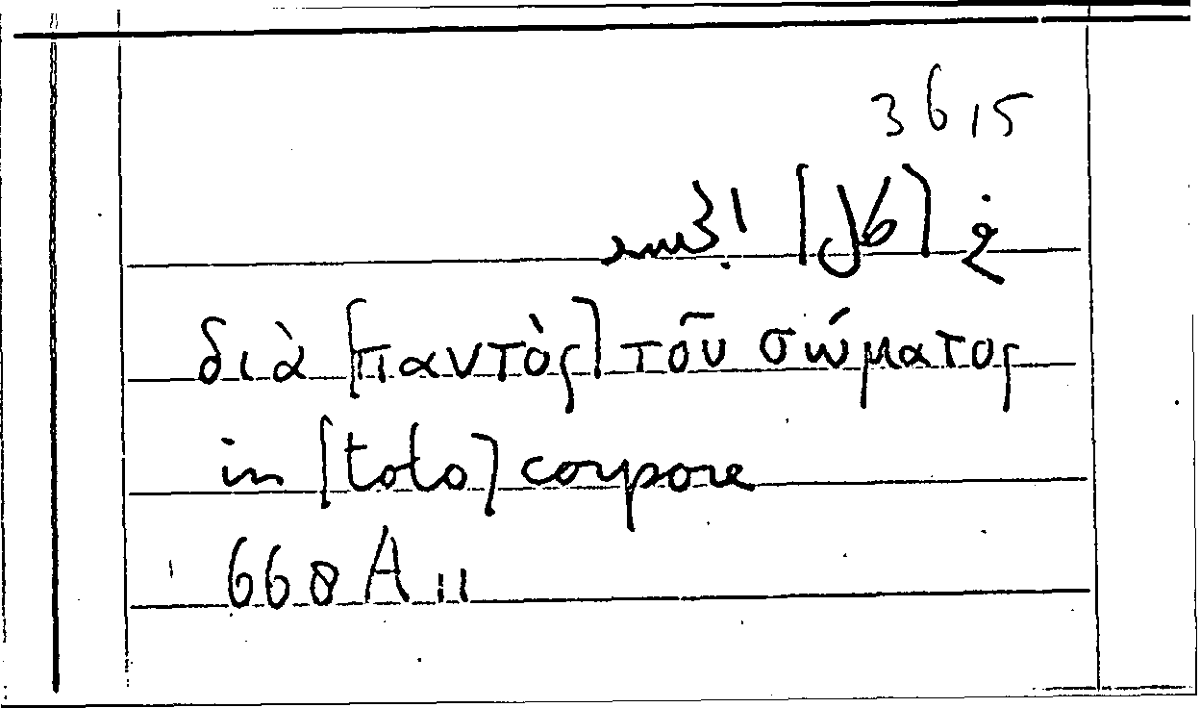 3 6 15
في [كل]
διὰ [παντὸς] τοῦ σώματος
in [toto] corpore
668 A 11